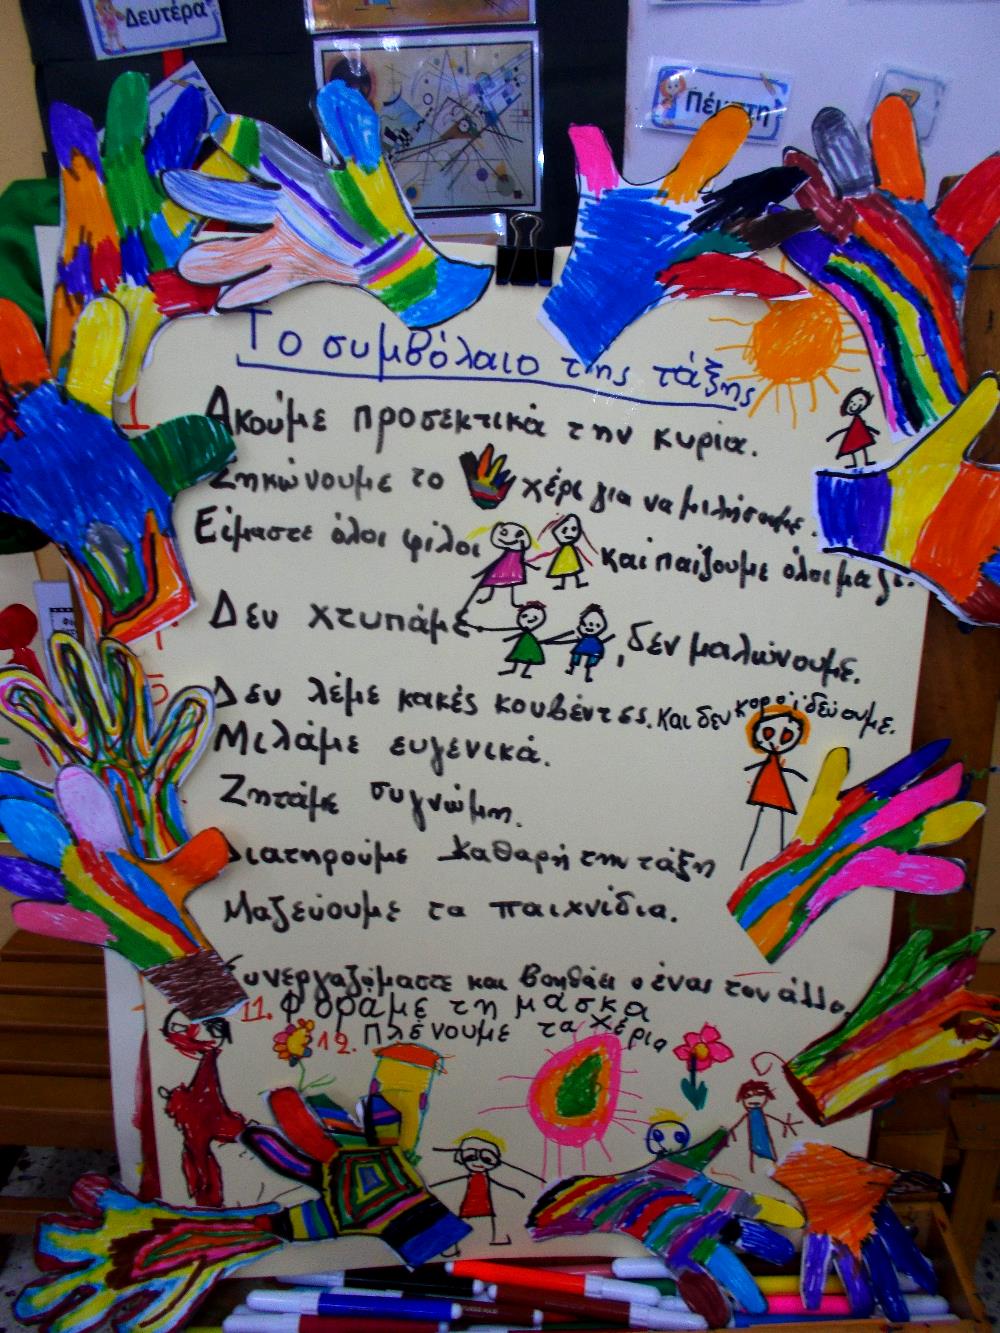 Δευτέρα
Πέμπτη
Το συμβόλαιο της τάξης
1. Ακούμε προσεκτικά την κυρία.
Σηκώνουμε το χέρι για να μιλήσουμε.
Είμαστε όλοι φίλοι και παίζουμε όλοι μαζί.
Δεν χτυπάμε, δεν μαλώνουμε.
5 Δεν λέμε κακές κουβέντες. και δεν κοροϊδεύουμε.
Μιλάμε ευγενικά.
Ζητάμε συγνώμη.
Διατηρούμε καθαρή την τάξη
Μαζεύουμε τα παιχνίδια.
Συνεργαζόμαστε και βοηθάει ο ένας τον άλλο.
11. Φοράμε τη μάσκα
12. Πλένουμε τα χέρια